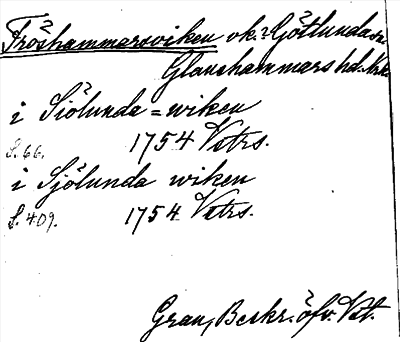 Fröshammarsviken ok. Götlunda sn
Glanshammars hd. Nrk.
i Siölunda=wiken
S. 66. 1754 Vetrs.
i Sjölunda wiken
S. 409. 1754 Vetrs.
Grau, Beskr. öfv. Vst.